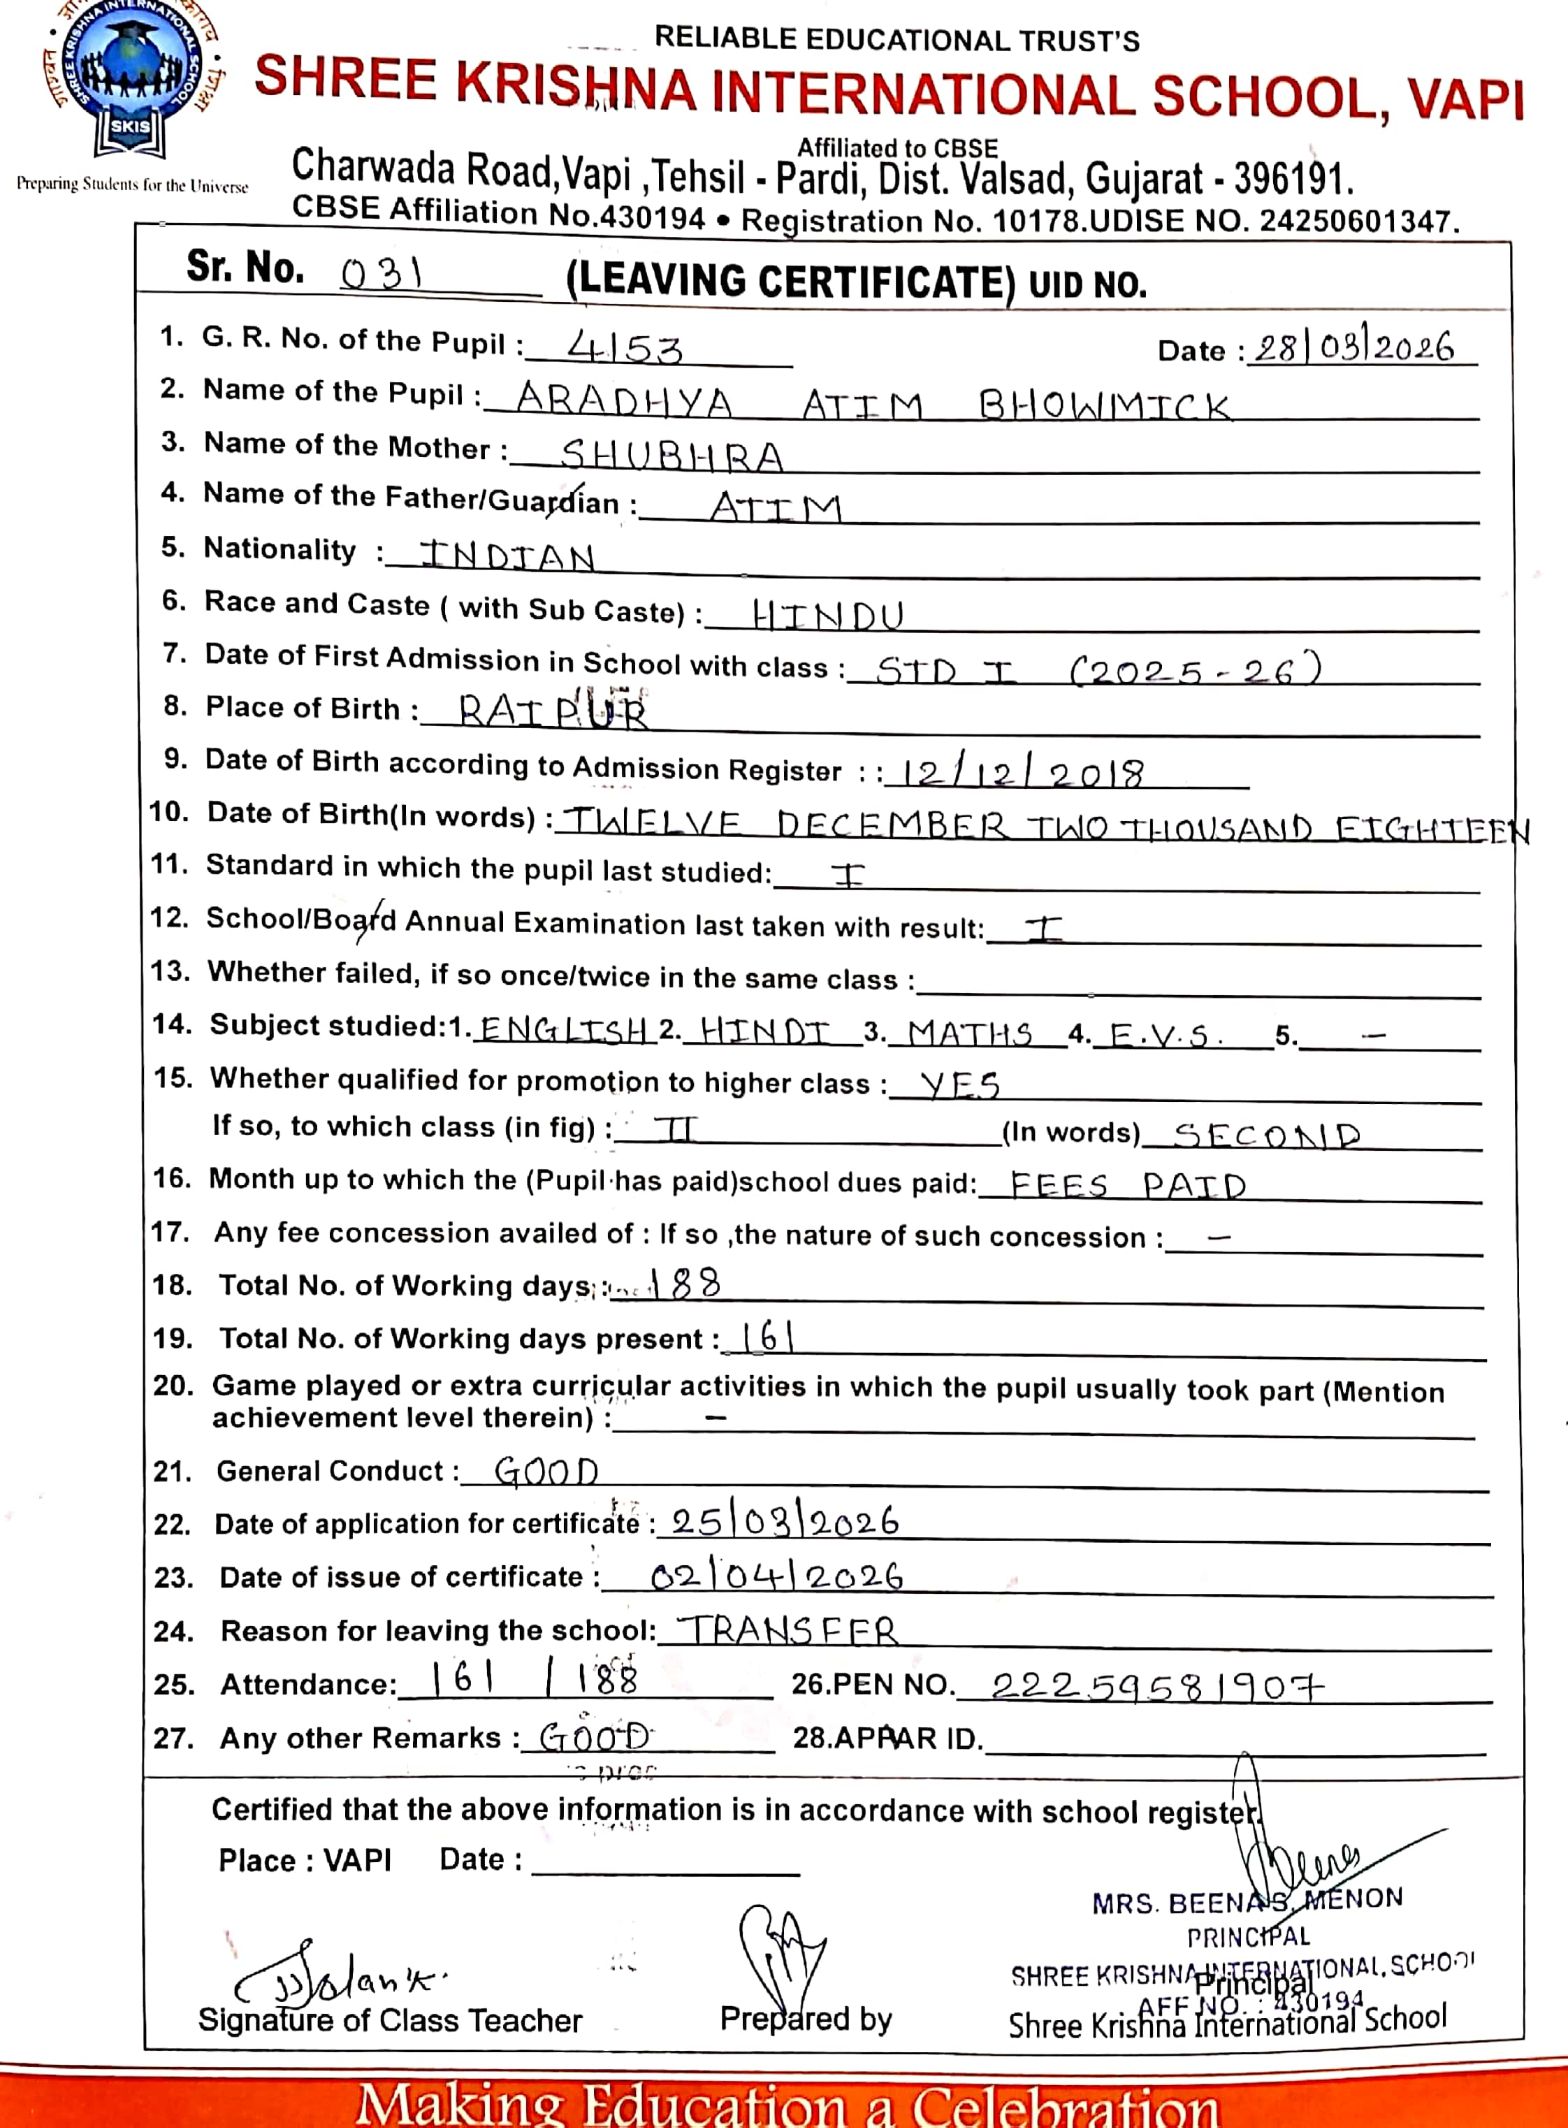 SHREE KRISHNA INTERNATIONAL SCHOOL
SKIS
Preparing Students for the Universe
RELIABLE EDUCATIONAL TRUST'S
SHREE KRISHNA INTERNATIONAL SCHOOL, VAPI
Affiliated to CBSE
Charwada Road,Vapi ,Tehsil - Pardi, Dist. Valsad, Gujarat - 396191.
CBSE Affiliation No.430194 • Registration No. 10178.UDISE NO. 24250601347.
Sr. No. 031 (LEAVING CERTIFICATE) UID NO.
1. G. R. No. of the Pupil : 4153 Date : 28/03/2026
2. Name of the Pupil : ARADHYA ATIM BHOWMICK
3. Name of the Mother : SHUBHRA
4. Name of the Father/Guardian : ATIM
5. Nationality : INDIAN
6. Race and Caste ( with Sub Caste) : HINDU
7. Date of First Admission in School with class : STD I (2025-26)
8. Place of Birth : RAIPUR
9. Date of Birth according to Admission Register : : 12/12/2018
10. Date of Birth(In words) : TWELVE DECEMBER TWO THOUSAND EIGHTEEN
11. Standard in which the pupil last studied: I
12. School/Board Annual Examination last taken with result: I
13. Whether failed, if so once/twice in the same class :
14. Subject studied:1. ENGLISH 2. HINDI 3. MATHS 4. E.V.S. 5. –
15. Whether qualified for promotion to higher class : YES
If so, to which class (in fig) : II (In words) SECOND
16. Month up to which the (Pupil has paid)school dues paid: FEES PAID
17. Any fee concession availed of : If so ,the nature of such concession : –
18. Total No. of Working days : 188
19. Total No. of Working days present : 161
20. Game played or extra curricular activities in which the pupil usually took part (Mention
achievement level therein) : –
21. General Conduct : GOOD
22. Date of application for certificate : 25/03/2026
23. Date of issue of certificate : 02/04/2026
24. Reason for leaving the school: TRANSFER
25. Attendance: 161 / 188 26.PEN NO. 22259581907
27. Any other Remarks : GOOD 28.APAAR ID.
Certified that the above information is in accordance with school register.
Place : VAPI Date :
MRS. BEENA S. MENON
PRINCIPAL
SHREE KRISHNA INTERNATIONAL SCHOOL
Principal
AFF NO. : 430194
Signature of Class Teacher Prepared by Shree Krishna International School
Making Education a Celebration